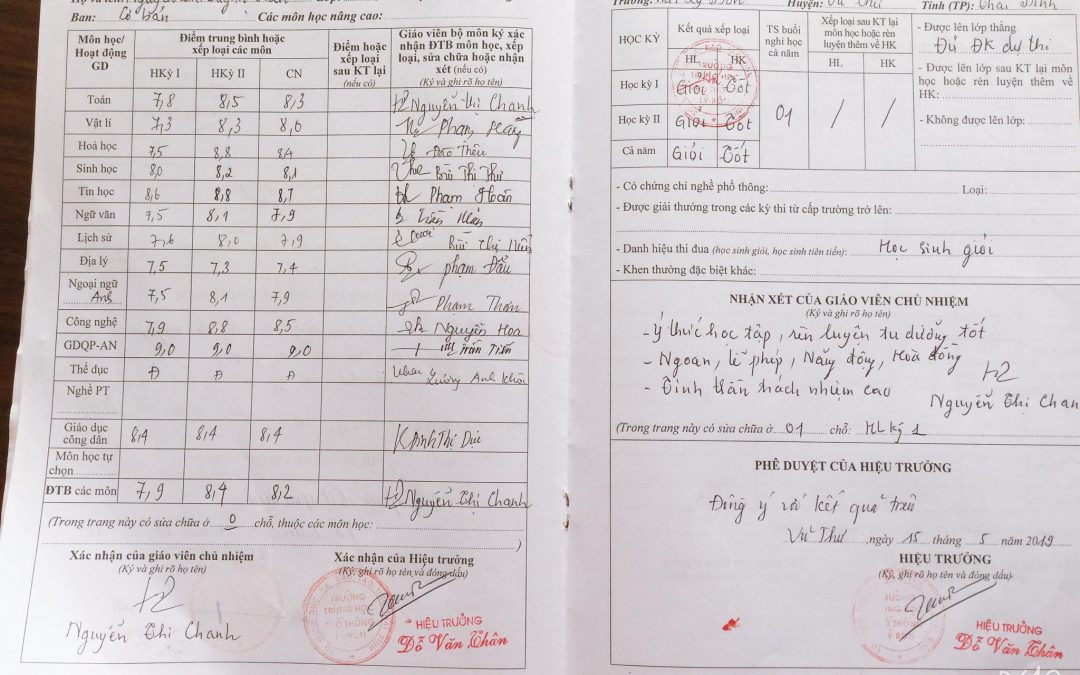 Ban: Cơ bản Các môn học nâng cao:
Môn học/ Hoạt động GD
Điểm trung bình hoặc xếp loại các môn
HKỳ I HKỳ II CN
Điểm hoặc xếp loại sau KT lại (nếu có)
Giáo viên bộ môn ký xác nhận ĐTB môn học, xếp loại, sửa chữa hoặc nhận xét (nếu có)
(Ký và ghi rõ họ tên)
Toán 7,8 8,5 8,3 Nguyễn Thị Chanh
Vật lí 7,3 8,3 8,0 Phạm
Hoá học 7,5 8,8 8,4 Đào Thêu
Sinh học 8,0 8,2 8,1 Bùi Thị Thư
Tin học 8,6 8,8 8,7 Phạm Hoãn
Ngữ văn 7,5 8,1 7,9
Lịch sử 7,6 8,0 7,9 Bùi Thị
Địa lý 7,5 7,3 7,4 Phạm Đẩu
Ngoại ngữ Anh 7,5 8,1 7,9 Phạm
Công nghệ 7,9 8,8 8,5 Nguyễn Hoa
GDQP-AN 9,0 9,0 9,0 Trần Tiến
Thể dục Đ Đ Đ Lương Anh
Nghề PT
Giáo dục công dân 8,4 8,4 8,4
Môn học tự chọn
ĐTB các môn 7,9 8,4 8,2 Nguyễn Thị Chanh
(Trong trang này có sửa chữa ở 0 chỗ, thuộc các môn học:
)
Xác nhận của giáo viên chủ nhiệm
(Ký, ghi rõ họ tên)
Nguyễn Thị Chanh
Xác nhận của Hiệu trưởng
(Ký, ghi rõ họ tên và đóng dấu)
HIỆU TRƯỞNG
Đỗ Văn Thân
Trường: Huyện: Vũ Thư Tỉnh (TP): Thái Bình
HỌC KỲ
Kết quả xếp loại
HL HK
TS buổi nghỉ học cả năm
Xếp loại sau KT lại môn học hoặc rèn luyện thêm về HK
HL HK
Học kỳ I Giỏi Tốt
Học kỳ II Giỏi Tốt 01 / /
Cả năm Giỏi Tốt
- Được lên lớp thẳng
Đủ ĐK dự thi
- Được lên lớp sau KT lại môn học hoặc rèn luyện thêm về HK:
- Không được lên lớp:
- Có chứng chỉ nghề phổ thông: Loại:
- Được giải thưởng trong các kỳ thi từ cấp trường trở lên:
- Danh hiệu thi đua (học sinh giỏi, học sinh tiên tiến): Học sinh giỏi
- Khen thưởng đặc biệt khác:
NHẬN XÉT CỦA GIÁO VIÊN CHỦ NHIỆM
(Ký và ghi rõ họ tên)
- Ý thức học tập, rèn luyện tu dưỡng tốt
- Ngoan, lễ phép, Năng động, Hoà đồng
- Tinh thần trách nhiệm cao
Nguyễn Thị Chanh
(Trong trang này có sửa chữa ở 01 chỗ: HL kỳ 1
PHÊ DUYỆT CỦA HIỆU TRƯỞNG
Đồng ý với kết quả trên
Vũ Thư, ngày 15 tháng 5 năm 2019
HIỆU TRƯỞNG
(Ký, ghi rõ họ tên và đóng dấu)
HIỆU TRƯỞNG
Đỗ Văn Thân